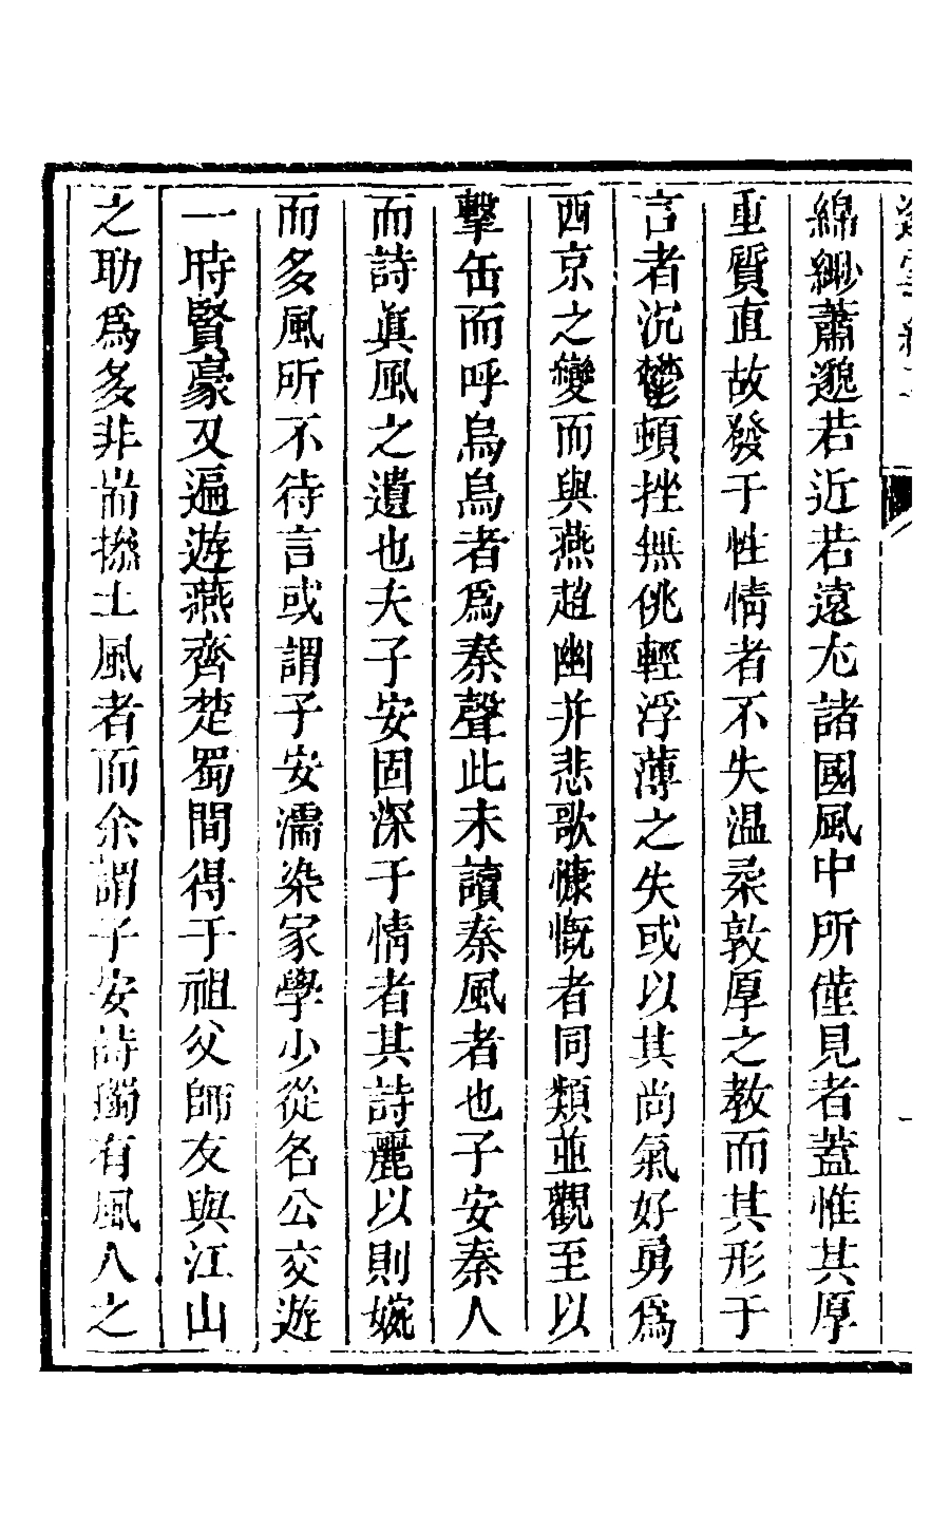 綿緲蕭邈若近若遠尤諸國風中所僅見者蓋惟其厚
重質直故發于性情者不失温柔敦厚之教而其形于
言者沉鬱頓挫無佻輕浮薄之失或以其尚氣好勇爲
西京之變而與燕趙幽并悲歌慷慨者同類並觀至以
擊缶而呼烏烏者爲秦聲此未讀秦風者也子安秦人
而詩眞風之遺也夫子安固深于情者其詩麗以則婉
而多風所不待言或謂子安濡染家學少從名公交遊
一時賢豪又遍遊燕齊楚蜀間得于祖父師友與江山
之助爲多非耑攃土風者而余謂子安詩獨有風人之